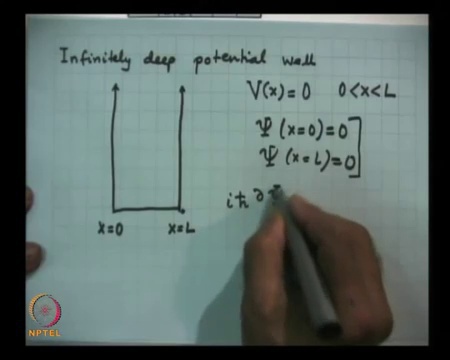 Infinitely deep potential well
V(x)=0 0<x<L
Ψ(x=0)=0
Ψ(x=L)=0
iħ ∂
x=0 x=L
NPTEL